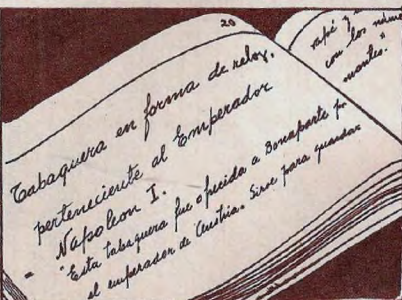 20
Tabaquera en forma de reloj,
perteneciente al Emperador
Napoleon I.
"Esta tabaquera fue ofrecida a Bonaparte por
el emperador de Austria. Sirve para guardar
rapé y
con los